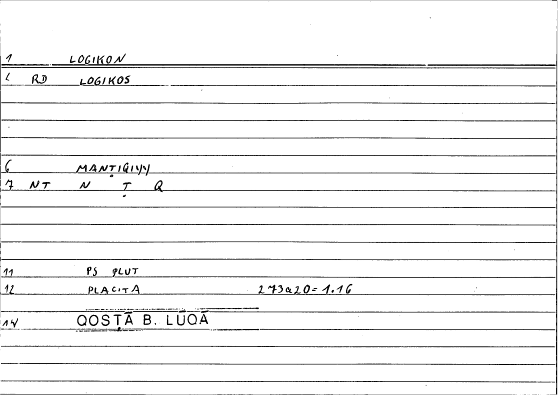 1 LOGIKON
L RD LOGIKOS
6 MANṬIQIYY
7 NT N Ṭ Q
11 PS PLUT
12 PLACITA 273a20=1.16
14 QOSṬĀ B. LŪQĀ